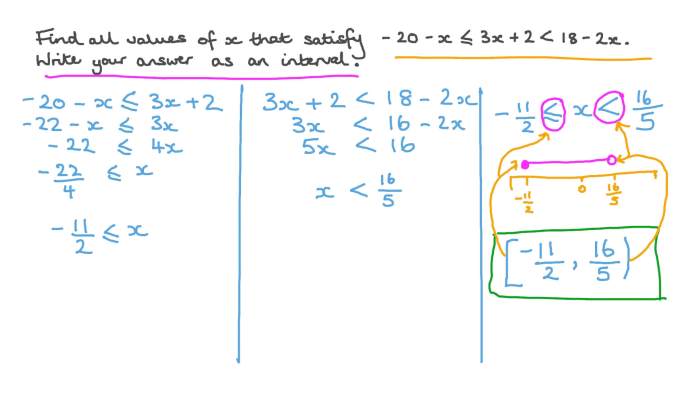 Find all values of x that satisfy -20 - x ≤ 3x + 2 < 18 - 2x.
Write your answer as an interval.
-20 - x ≤ 3x + 2
-22 - x ≤ 3x
-22 ≤ 4x
-22/4 ≤ x
-11/2 ≤ x
3x + 2 < 18 - 2x
3x < 16 - 2x
5x < 16
x < 16/5
-11/2 ≤ x < 16/5
-11/2 0 16/5
[-11/2, 16/5)